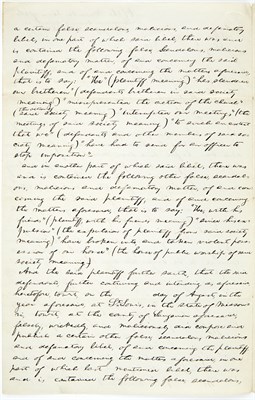 a certain false scandalous malicious and defamatory
libel, in one part of which said libel, there was and
is contained the following false Scandalous, malicious
and defamatory matter, of and concerning the said
plaintiff, and of and concerning the matters aforesaid,
that is to say: "He" (plaintiff meaning) "has slandered
our brethren" (defendants brethren in said society
meaning) "misrepresented the action of the church"
(said society meaning) "interrupted our meeting," (the
meetings of said society meaning) "to such an extent
that we" (defendants and other members of said so-
ciety meaning) "have had to send for an officer to
stop
And in another part of which said libel, there was
and is contained the following other false scandal-
ous, malicious and defamatory matter of and con-
cerning the said plaintiff, and of and concerning
the matters aforesaid, that is to say: "He, with his
friends" (plaintiff with his friends meaning) "
" (the expulsion of plaintiff from said society
meaning) "have broken into and taken violent poss-
ession of our house" (the house of public worship of said
society meaning)
And the said plaintiff further saith, that the said
defendant further contriving and intending as aforesaid
heretofore, to wit on the day of August in the
year aforesaid at St Louis, in the State of Missouri
to wit at the county of aforesaid,
falsely, wickedly and maliciously did compose and
publish a certain other false, scandalous, malicious
and defamatory libel, of and concerning the plaintiff
and of and concerning the matters aforesaid, in one
part of which last mentioned libel, there was
and is contained the following false scandalous,